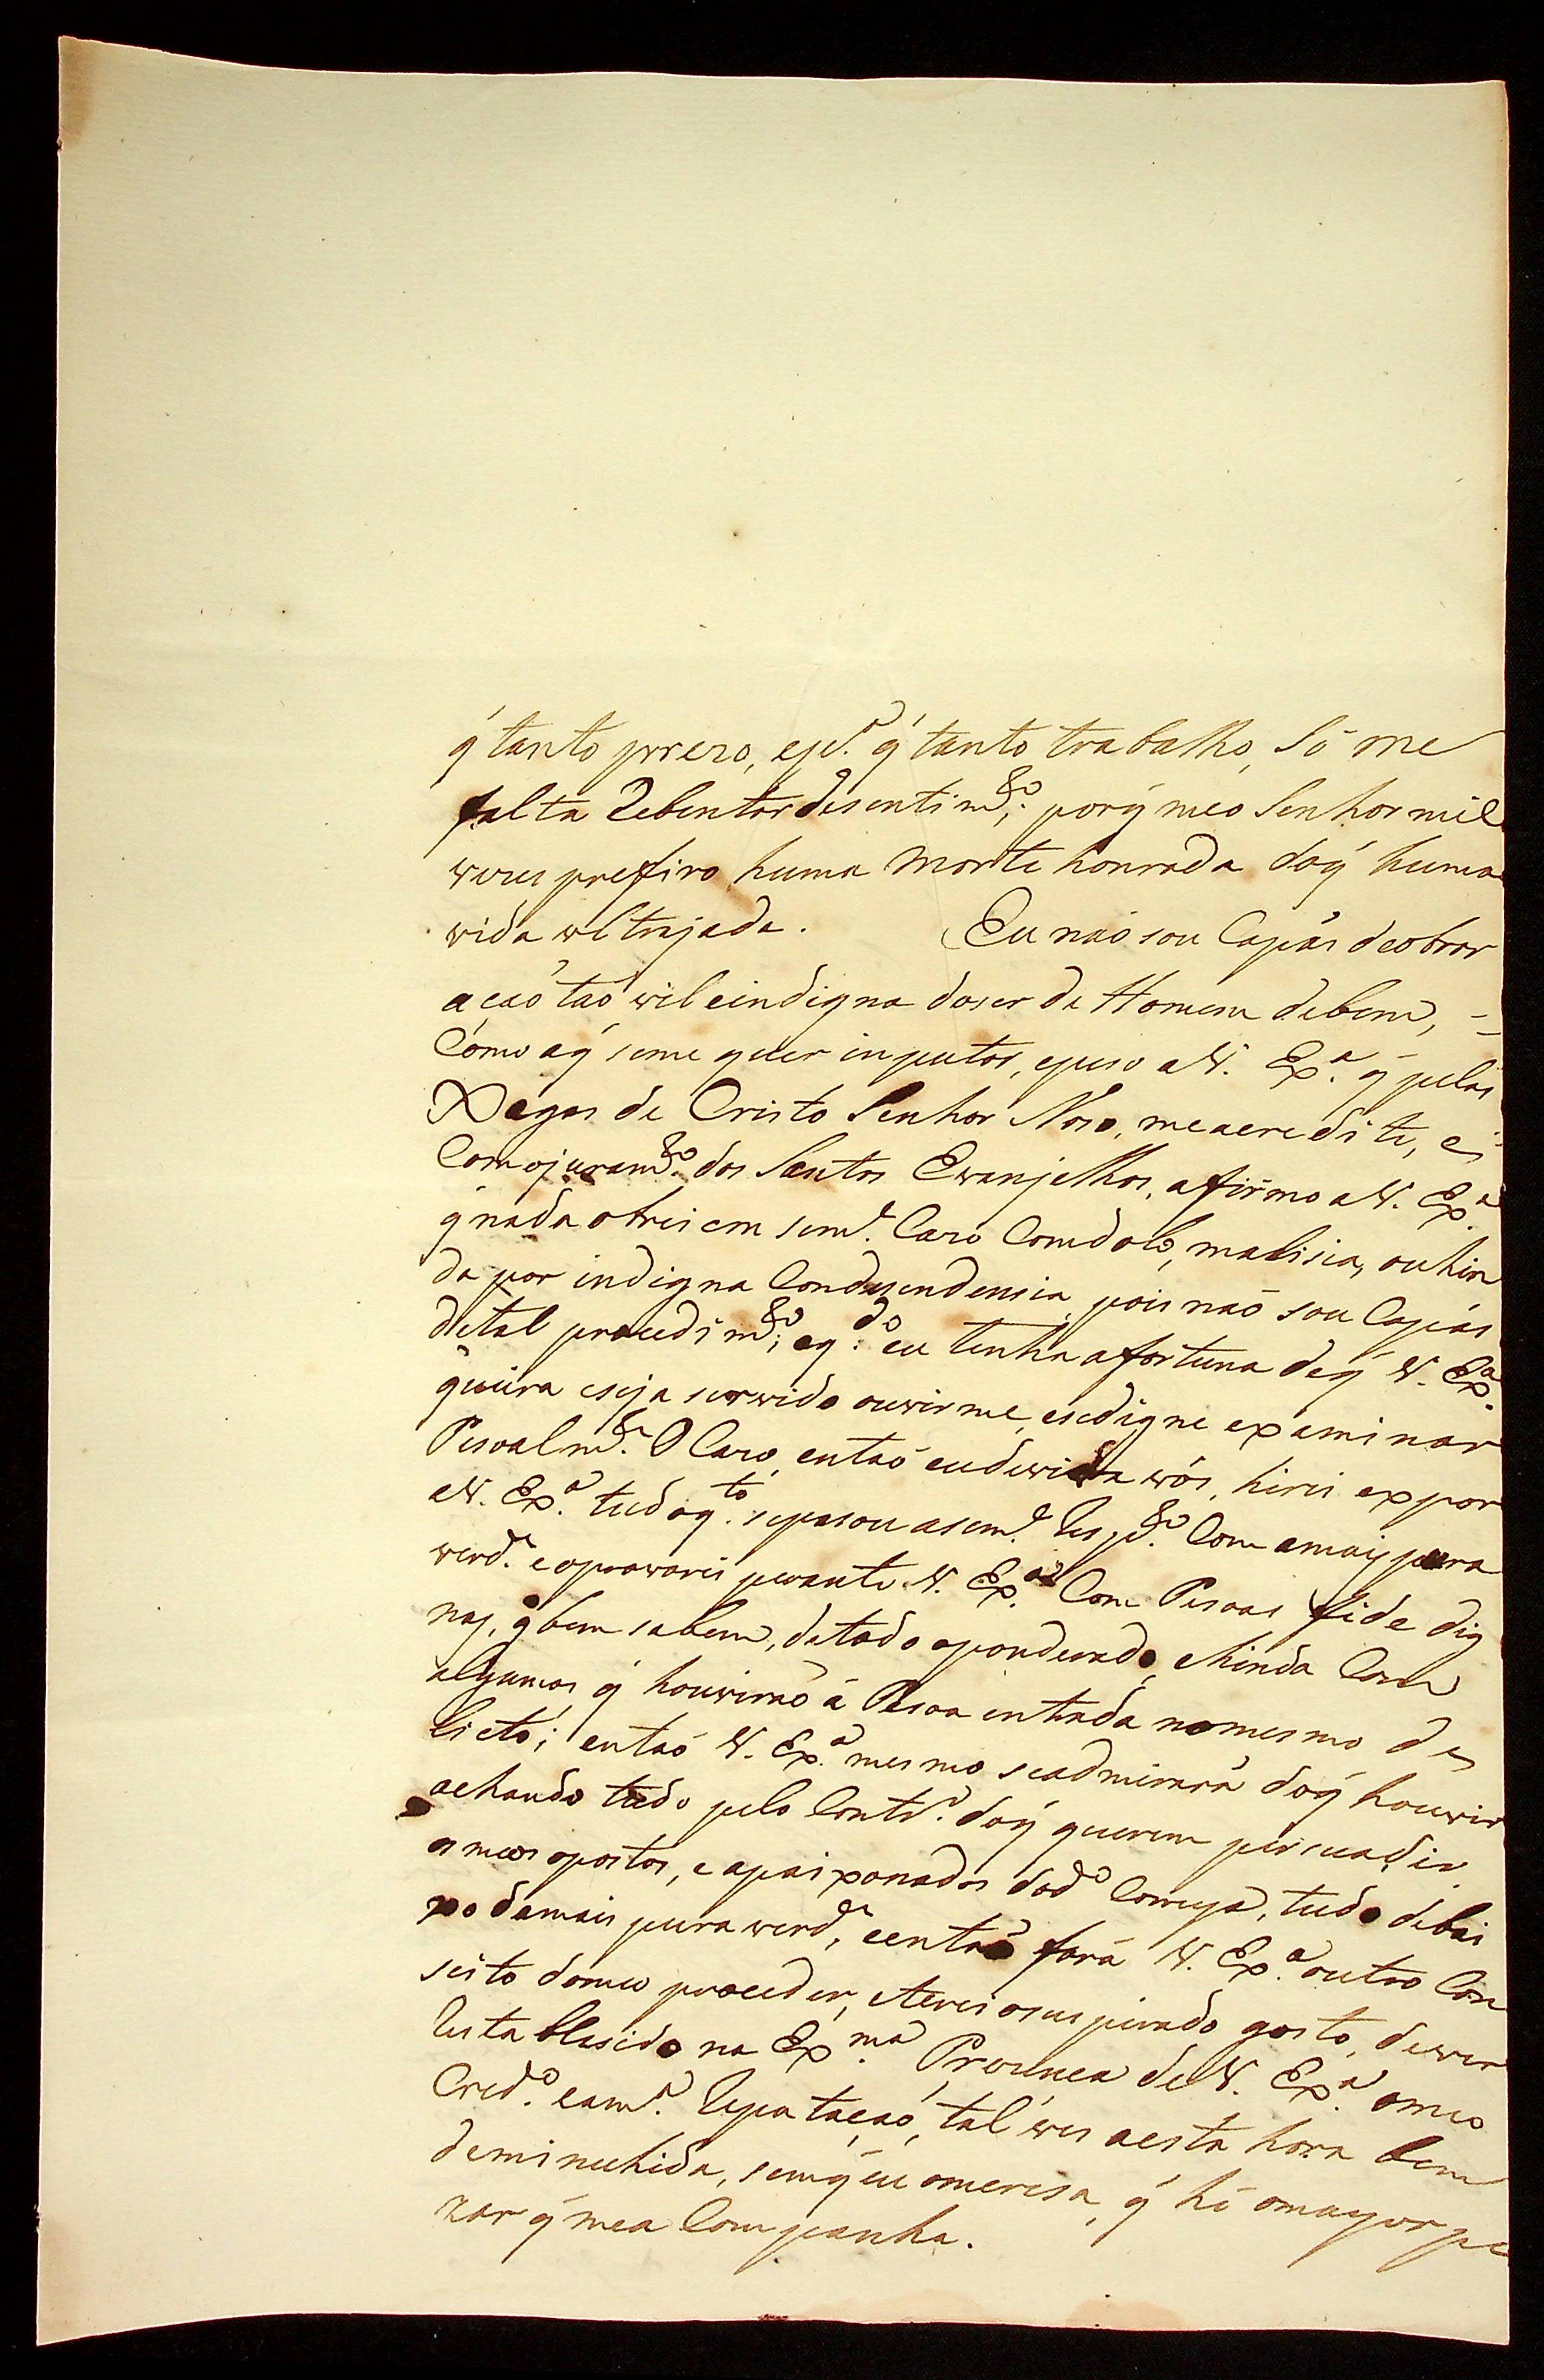 q' tanto prezo, e p.ª q' tanto trabalho, Só me
falta Rebentar de sentim.to; porq' meo Senhor mil
wezes prefiro huma Morte honrada doq' huma
wida wltrajada. Eu naõ sou Capás deobrar
acaõ taõ wil eindigna doser de Homem debem,
Como áq' seme quer inputar, epeso a W. Ex.ª q' pelas
Xagas de Cristo Senhor Noso, meacredite, e
Comojuram.to dos Santos Ewanjelhos, afirmo a W. Ex.ª
q' nada obrei em sem.e Cazo Comdolo, malisia, ouhin
da por indigna Condesendensia, pois naõ sou Capás
detal prosedim.to; eq.do eu tenha afortuna deq' W. Ex.ª
queira eseja serwido ouwirme, esedigne expeminar
Pesoalm.te O Cazo, entaõ eudewiwa wós, hirei expor
a W. Ex.ª tudoq.to sepasou asem.e Resp.to Com amais pura
werd.e eoprowarei perante W. Ex.ª Com Pesoas fide dig
nas, q' bem sabem, detodo oponderado, ehinda Com
algumas q' houwiraõ á Pesoa entrada nomesmo de
licto; entaõ W. Ex.ª mesmo seadmirará doq' houwir
achando tudo pelo Contr.º doq' querem persuadir
os meos opostos, e apaixonados dod.º Correya, tudo debai
xo damais pura werd.e, eentaõ fará W. Ex.ª outro Con
seito domeo proceder, eterei osuspirado gosto, dewer
Restablesido na Ex.ma Prezenca de W. Ex.ª omeo
Cred.º eam.ª Reputacaõ, tal wes aesta hora bem
deminuhida, semq' eu omeresa, q' hé omayor pe
zar q' mea Companha.